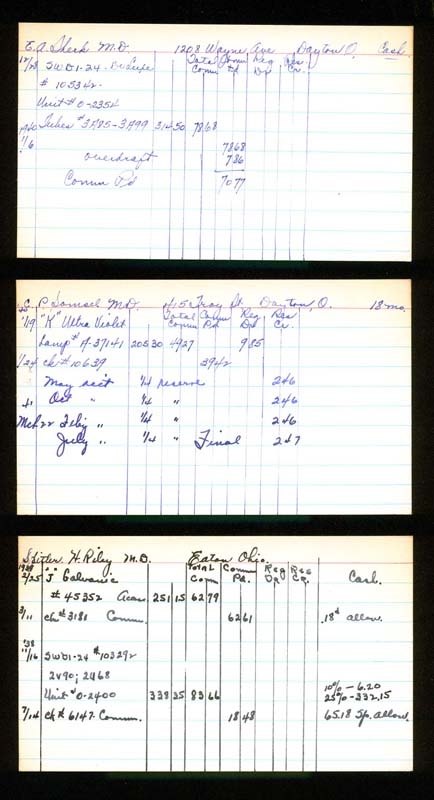 E.A. Shenk M.D. 1208 Wayne Ave Dayton O. Cash
Total Comm Reg Res.
12/28 SWD1-24 - De Luxe Comm Pd Dr Cr.
# 105342-
Unit # 0-2354
1940 Tubes # 3A85-3A99 314 50 78 68
1/6 78 68
overdraft 7 86
Comm Pd 70 77
P. Somsel M.D. 415 Troy St. Dayton, O. 18 mo.
Total Comm Reg Res
'19 "K" Ultra Violet Comm Pd. Dr Cr.
Lamp # A-37141 205 30 49 27 9 85
1/24 ck # 10639 39 42
May acc't 1/4 reserve 2 46
Oct " 1/4 " 2 46
Mch 22 Feby " 1/4 " 2 46
July " 1/4 " Final 2 47
Spitler H. Riley M.D. Eaton Ohio.
Total Comm Reg Res
2/25 "J" Galvanic Comm Pd. Dr Cr. Cash.
# 45352 Acas. 251 15 62 79
3/11 ck # 3181 Comm. 62 61 .18¢ allow.
'38
11/16 SWD1-24 # 103292
2V90; 2U68
Unit # 0-2400 338 35 83 66 10% - 6.20
25% - 332.15
7/14 ck # 6147 Comm. 18 48 65.18 Sp. allow.